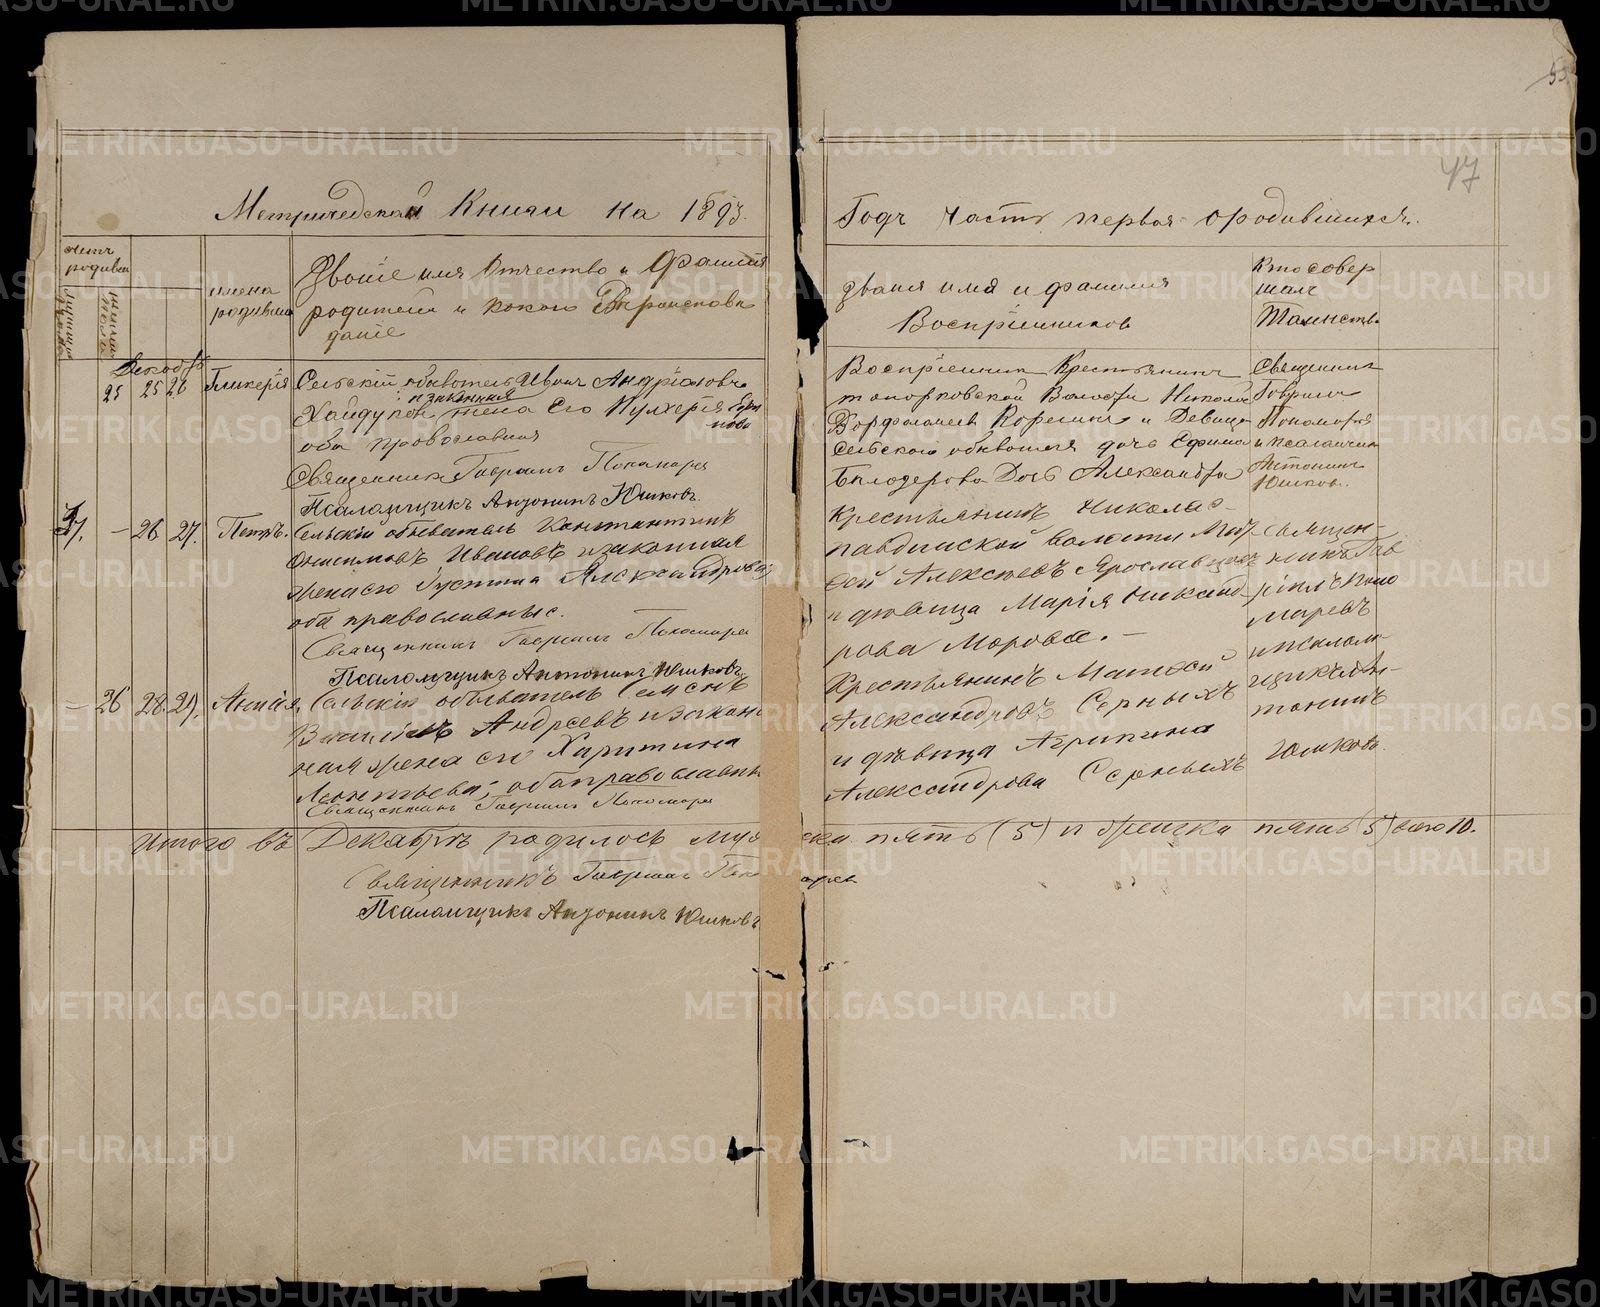 55
47
Метрической Книги на 1893.
Годъ Часть первая о родившихся.
Счетъ
родивш
имена
родивш
Званіе имя Отчество и Фамилія
родителей и какого Вѣроисповѣ
даніе
Званія имя и фамилия
Воспріемниковъ
Кто совер
шалъ
Таинство
Декабрь
25 25 26 Гликерія
Сельскій обыватель Иванъ Андріановъ
Хайдуковъ и законная жена Его Пулхерія
оба православныя
Священникъ Гавріилъ Пономарев
Псаломщикъ Антонинъ Юшковъ.
Воспріемники Крестьянинъ
топорковской Волости Николай
Варфаламеев Корелинъ и Девица
Сельского обывателя дочь Ефима
Белодерова Дочь Александра
Священникъ
Гаврилъ
Пономарев
и псаломчикъ
Антонинъ
Юшков.
– 26 27. Петръ.
Сельскій обыватель Константинъ
Онисимовъ Ивановъ и законная
жена его Іустина Александрова;
оба православные.
Священникъ Гавріилъ Пономарев
Псаломщикъ Антонинъ Юшковъ
Крестьянинъ Николае-
павдинской волости
Алексѣевъ Ярославцевъ
и дѣвица Марія Никанд
рова Морова. –
священ-
никъ Гав
ріилъ Поно
маревъ
и псалом
щикъ Ан-
тонинъ
Юшковъ.
– 26 28. 29. Анисія,
Сельскій обыватель Семенъ
Василіевъ Андреевъ и закон
ная жена его Харитина
Леонтьева; оба православны
Священникъ Гавріилъ Пономарев
Крестьянинъ Матѳей
Александровъ Серныхъ
и дѣвица Агрипина
Александрова Серныхъ
Итого въ Декабрѣ родилось мужска пять (5) и женска пять (5) всего 10.
Священникъ Гавріилъ Пономарев
Псаломщикъ Антонинъ Юшковъ
METRIKI.GASO-URAL.RU